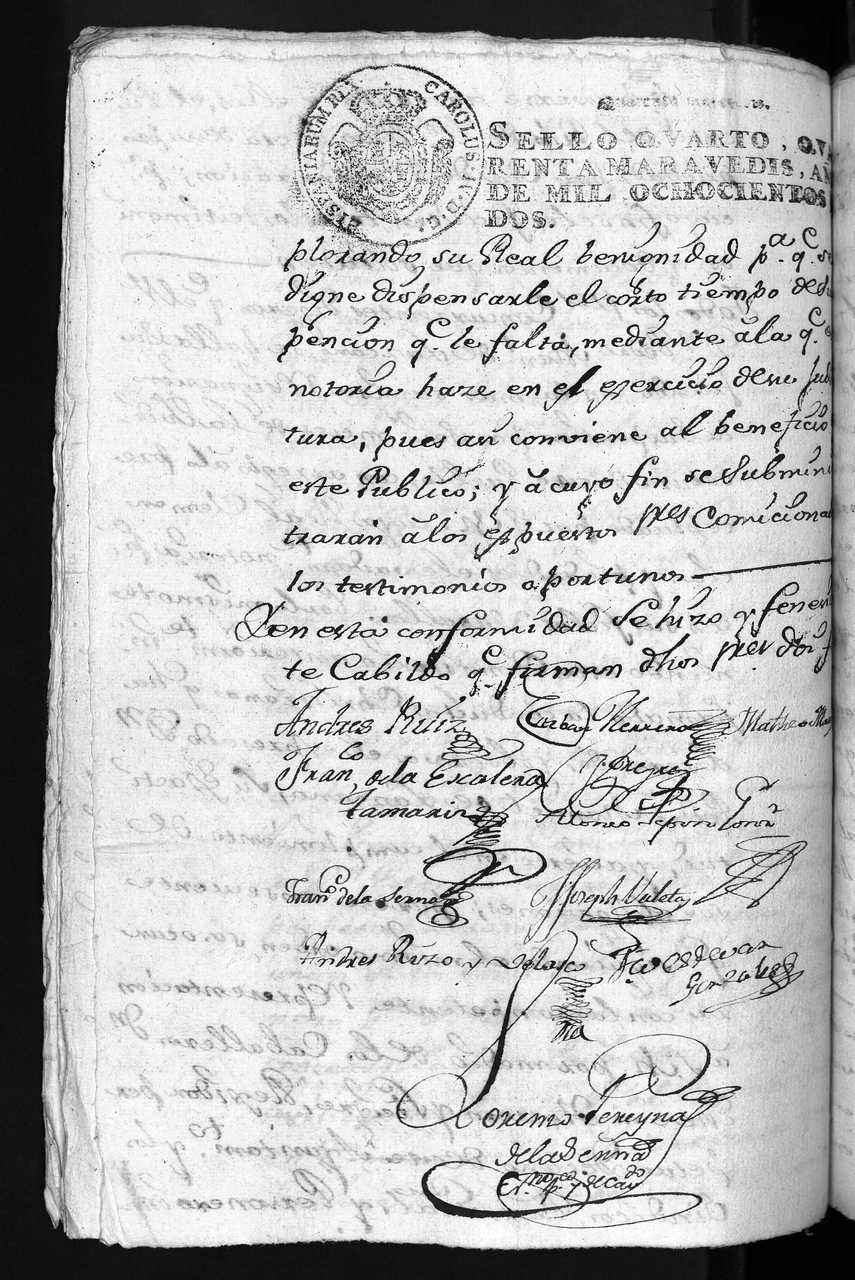 HISPANIARUM REX CAROLUS IV D. G.
SELLO QVARTO, QVA
RENTA MARAVEDIS, AÑ
DE MIL OCHOCIENTOS
DOS.
plorando su Real benignidad pª. qᵉ. se
digne dispensarle el corto tiempo de su
pencion qᵉ. le falta, mediante ála qᵉ. e
notoria haze en el exercicio desu Judi
tura, pues asi conviene al beneficio
este Publico; y á cuyo fin se Submini
traran álos expuestos ꝑres Comiciona
los testimonios oportunos
Y en esta conformidad se hizo y fenec
te Cabildo qᵉ. firman dhos ꝑres
Andres Ruiz
Herrero Matheo
Franᶜᵒ. de la Escalera
Tamariz
Pereyra
Alonso
Franᶜᵒ de la Serna
Joseph Valeta
Andres Rizo y Velasco
Franᶜᵒ Estevan
Gonzales
Lorenzo Pereyra
de la